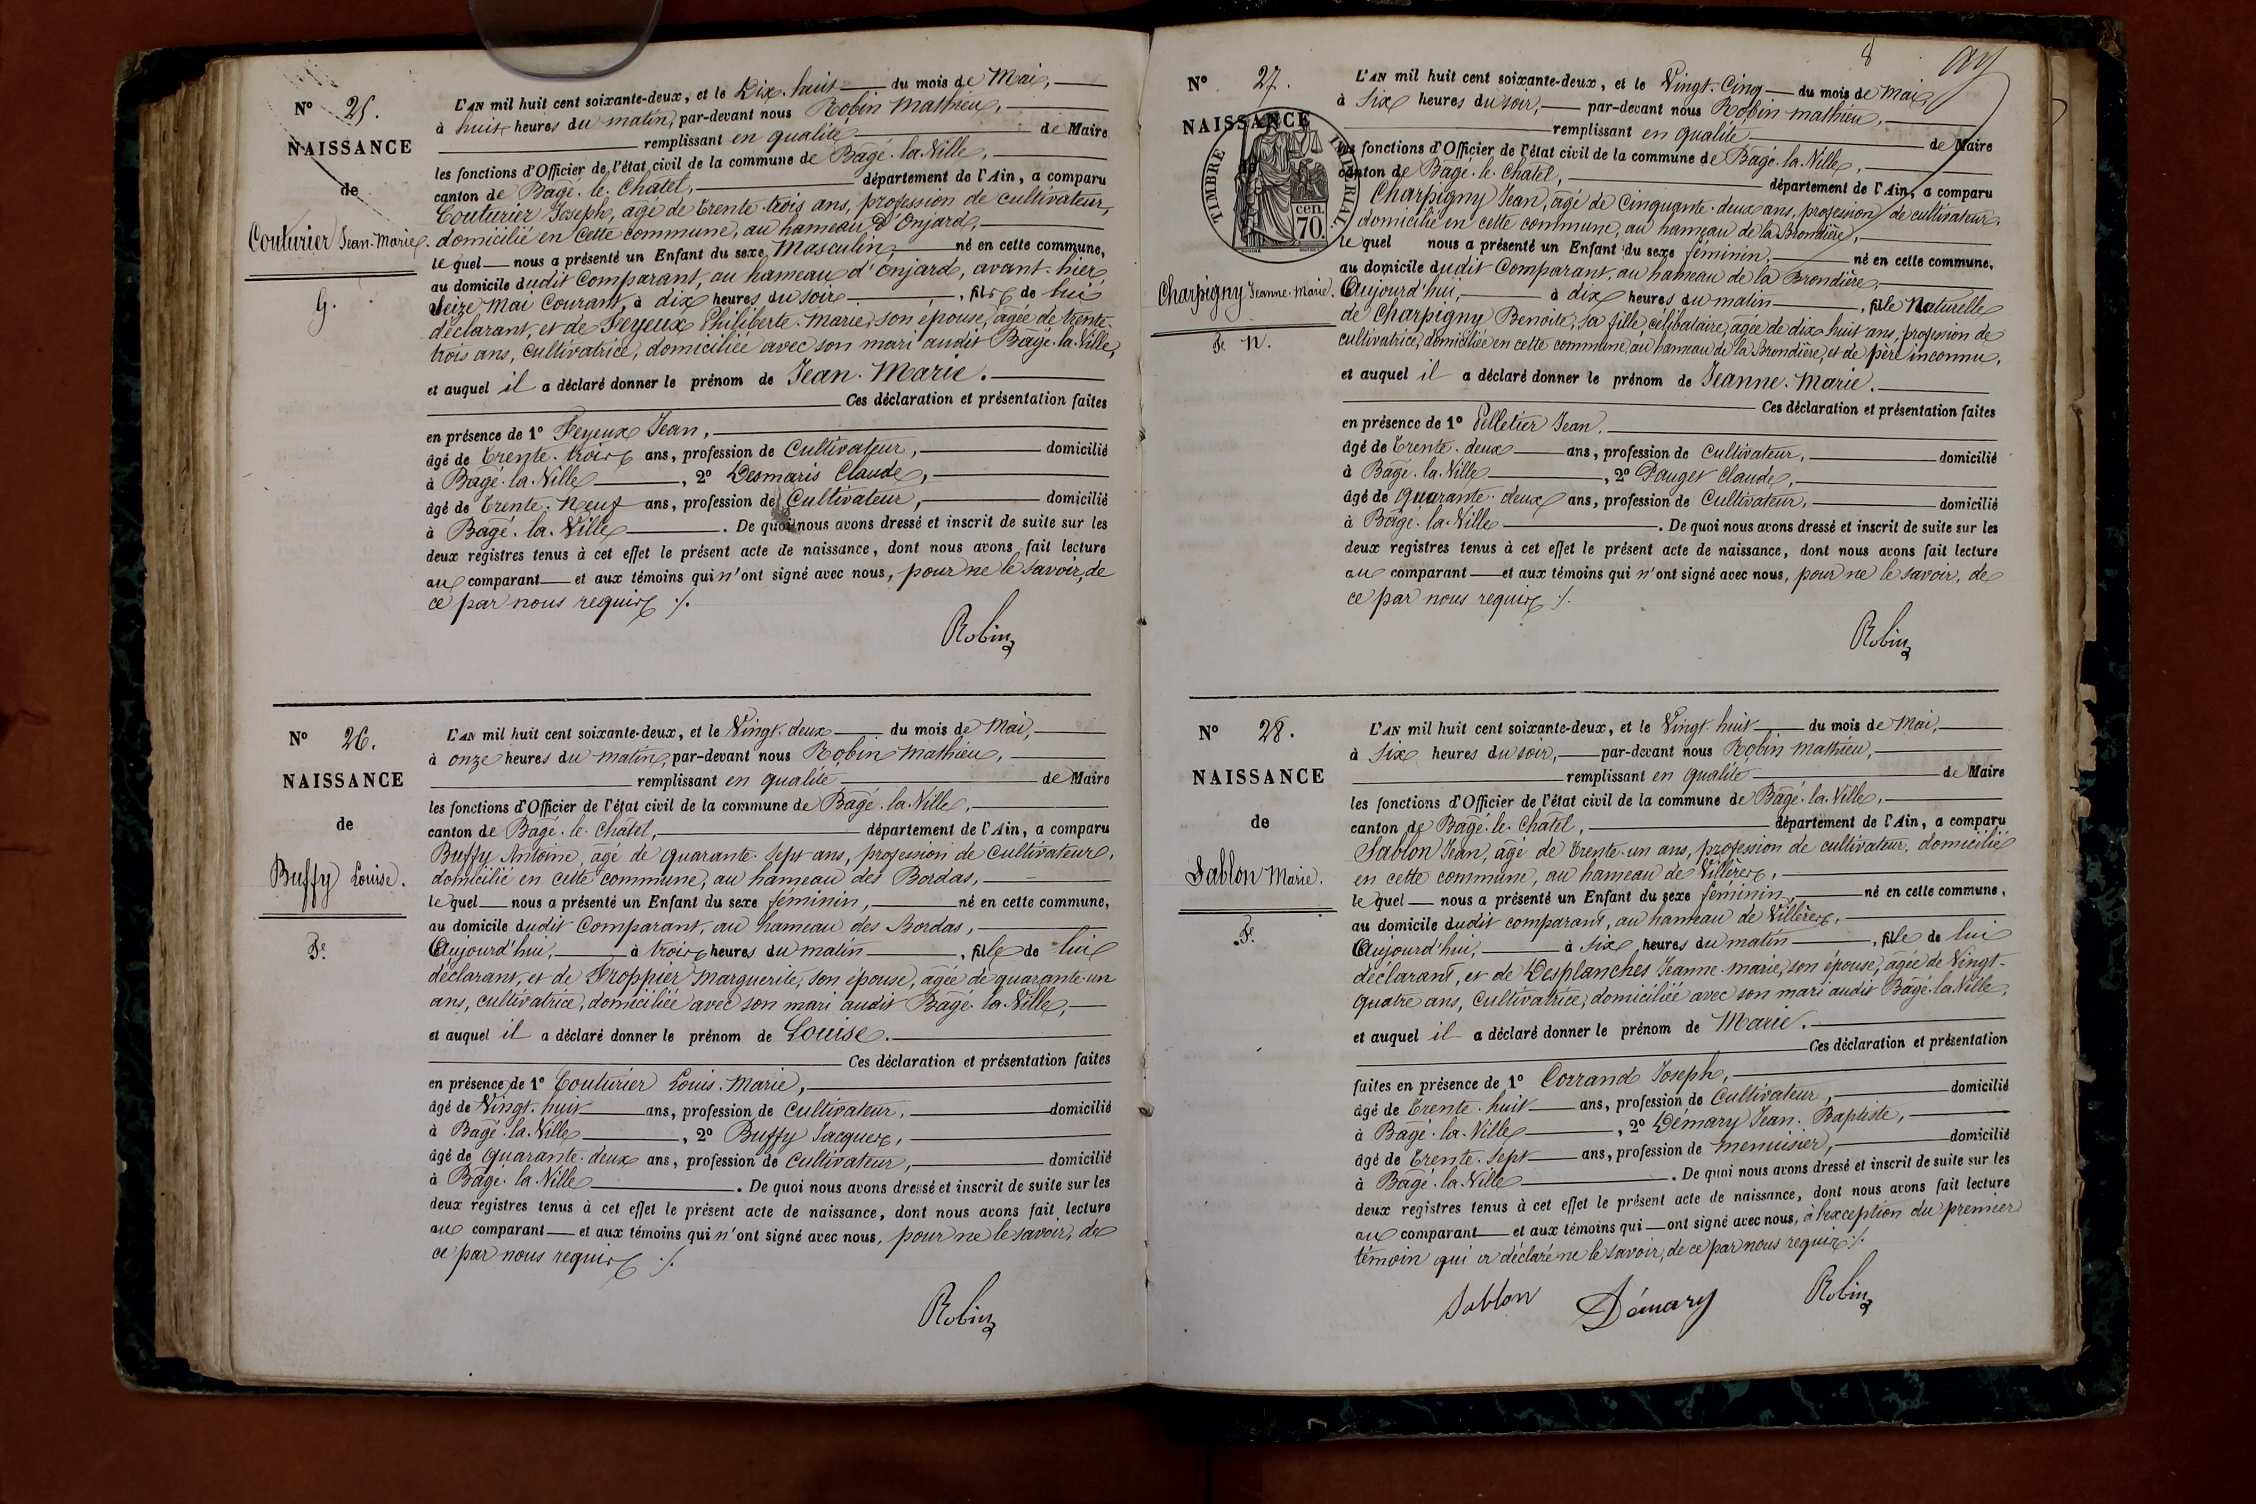 N° 25.
NAISSANCE
de
Couturier Jean-Marie.
G.
L'AN mil huit cent soixante-deux, et le Dix-huit du mois de Mai,
à huit heures du matin, par-devant nous Robin Mathieu,
remplissant en qualité de Maire
les fonctions d'Officier de l'état civil de la commune de Bagé-la-Ville,
canton de Bagé-le-Châtel, département de l'Ain, a comparu
Couturier Joseph, âgé de trente-trois ans, profession de cultivateur,
domicilié en cette commune, au hameau d'Onjard,
lequel nous a présenté un Enfant du sexe Masculin, né en cette commune,
au domicile dudit Comparant, au hameau d'Onjard, avant-hier
Seize Mai Courant, à dix heures du soir, fils de lui
déclarant, et de Feyeux Philiberte-Marie, son épouse, âgée de trente-
trois ans, cultivatrice, domiciliée avec son mari audit Bagé-la-Ville,
et auquel il a déclaré donner le prénom de Jean-Marie.
Ces déclaration et présentation faites
en présence de 1° Feyeux Jean,
âgé de trente-trois ans, profession de Cultivateur, domicilié
à Bagé-la-Ville, 2° Desmaris Claude,
âgé de trente-neuf ans, profession de Cultivateur, domicilié
à Bagé-la-Ville. De quoi nous avons dressé et inscrit de suite sur les
deux registres tenus à cet effet le présent acte de naissance, dont nous avons fait lecture
au comparant et aux témoins qui n'ont signé avec nous, pour ne le savoir, de
ce par nous requis ./.
Robin
N° 26.
NAISSANCE
de
Buffy Louise.
Fe.
L'AN mil huit cent soixante-deux, et le Vingt-deux du mois de Mai,
à onze heures du matin, par-devant nous Robin Mathieu,
remplissant en qualité de Maire
les fonctions d'Officier de l'état civil de la commune de Bagé-la-Ville,
canton de Bagé-le-Châtel, département de l'Ain, a comparu
Buffy Antoine, âgé de quarante-sept ans, profession de Cultivateur,
domicilié en cette commune, au hameau des Bordas,
lequel nous a présenté un Enfant du sexe féminin, né en cette commune,
au domicile dudit Comparant, au hameau des Bordas,
Aujourd'hui, à trois heures du matin, fille de lui
déclarant, et de Froppier Marguerite, son épouse, âgée de quarante-un
ans, cultivatrice, domiciliée avec son mari audit Bagé-la-Ville,
et auquel il a déclaré donner le prénom de Louise.
Ces déclaration et présentation faites
en présence de 1° Couturier Louis-Marie,
âgé de Vingt-huit ans, profession de Cultivateur, domicilié
à Bagé-la-Ville, 2° Buffy Jacques,
âgé de quarante-deux ans, profession de Cultivateur, domicilié
à Bagé-la-Ville. De quoi nous avons dressé et inscrit de suite sur les
deux registres tenus à cet effet le présent acte de naissance, dont nous avons fait lecture
au comparant et aux témoins qui n'ont signé avec nous, pour ne le savoir, de
ce par nous requis ./.
Robin
8
N° 27.
NAISSANCE
TIMBRE IMPÉRIAL.
cen.
70.
Charpigny Jeanne-Marie.
Fe N.
L'AN mil huit cent soixante-deux, et le Vingt-Cinq du mois de Mai,
à Six heures du soir, par-devant nous Robin Mathieu,
remplissant en qualité de Maire
les fonctions d'Officier de l'état civil de la commune de Bagé-la-Ville,
canton de Bagé-le-Châtel, département de l'Ain, a comparu
Charpigny Jean, âgé de Cinquante-deux ans, profession de cultivateur,
domicilié en cette commune, au hameau de la Brondière,
lequel nous a présenté un Enfant du sexe féminin, né en cette commune,
au domicile dudit Comparant, au hameau de la Brondière,
Aujourd'hui, à dix heures du matin, fille Naturelle
de Charpigny Benoite, sa fille, célibataire, âgée de dix huit ans, profession de
cultivatrice, domiciliée en cette commune, au hameau de la Brondière, et de père inconnu,
et auquel il a déclaré donner le prénom de Jeanne-Marie.
Ces déclaration et présentation faites
en présence de 1° Pelletier Jean,
âgé de trente-deux ans, profession de Cultivateur, domicilié
à Bagé-la-Ville, 2° Pauget Claude,
âgé de quarante-deux ans, profession de Cultivateur, domicilié
à Bagé-la-Ville. De quoi nous avons dressé et inscrit de suite sur les
deux registres tenus à cet effet le présent acte de naissance, dont nous avons fait lecture
au comparant et aux témoins qui n'ont signé avec nous, pour ne le savoir, de
ce par nous requis ./.
Robin
N° 28.
NAISSANCE
de
Sablon Marie.
Fe.
L'AN mil huit cent soixante-deux, et le Vingt-huit du mois de Mai,
à Six heures du soir, par-devant nous Robin Mathieu,
remplissant en qualité de Maire
les fonctions d'Officier de l'état civil de la commune de Bagé-la-Ville,
canton de Bagé-le-Châtel, département de l'Ain, a comparu
Sablon Jean, âgé de trente-un ans, profession de cultivateur, domicilié
en cette commune, au hameau de Villères,
lequel nous a présenté un Enfant du sexe féminin, né en cette commune,
au domicile dudit comparant, au hameau de Villères,
Aujourd'hui, à six heures du matin, fille de lui
déclarant, et de Desplanches Jeanne-Marie, son épouse, âgée de Vingt-
quatre ans, Cultivatrice, domiciliée avec son mari audit Bagé-la-Ville,
et auquel il a déclaré donner le prénom de Marie.
Ces déclaration et présentation
faites en présence de 1° Corrand Joseph,
âgé de trente-huit ans, profession de Cultivateur, domicilié
à Bagé-la-Ville, 2° Démary Jean-Baptiste,
âgé de trente-sept ans, profession de menuisier, domicilié
à Bagé-la-Ville. De quoi nous avons dressé et inscrit de suite sur les
deux registres tenus à cet effet le présent acte de naissance, dont nous avons fait lecture
au comparant et aux témoins qui ont signé avec nous, à l'exception du premier
témoin qui a déclaré ne le savoir, de ce par nous requis ./.
Sablon Démary Robin